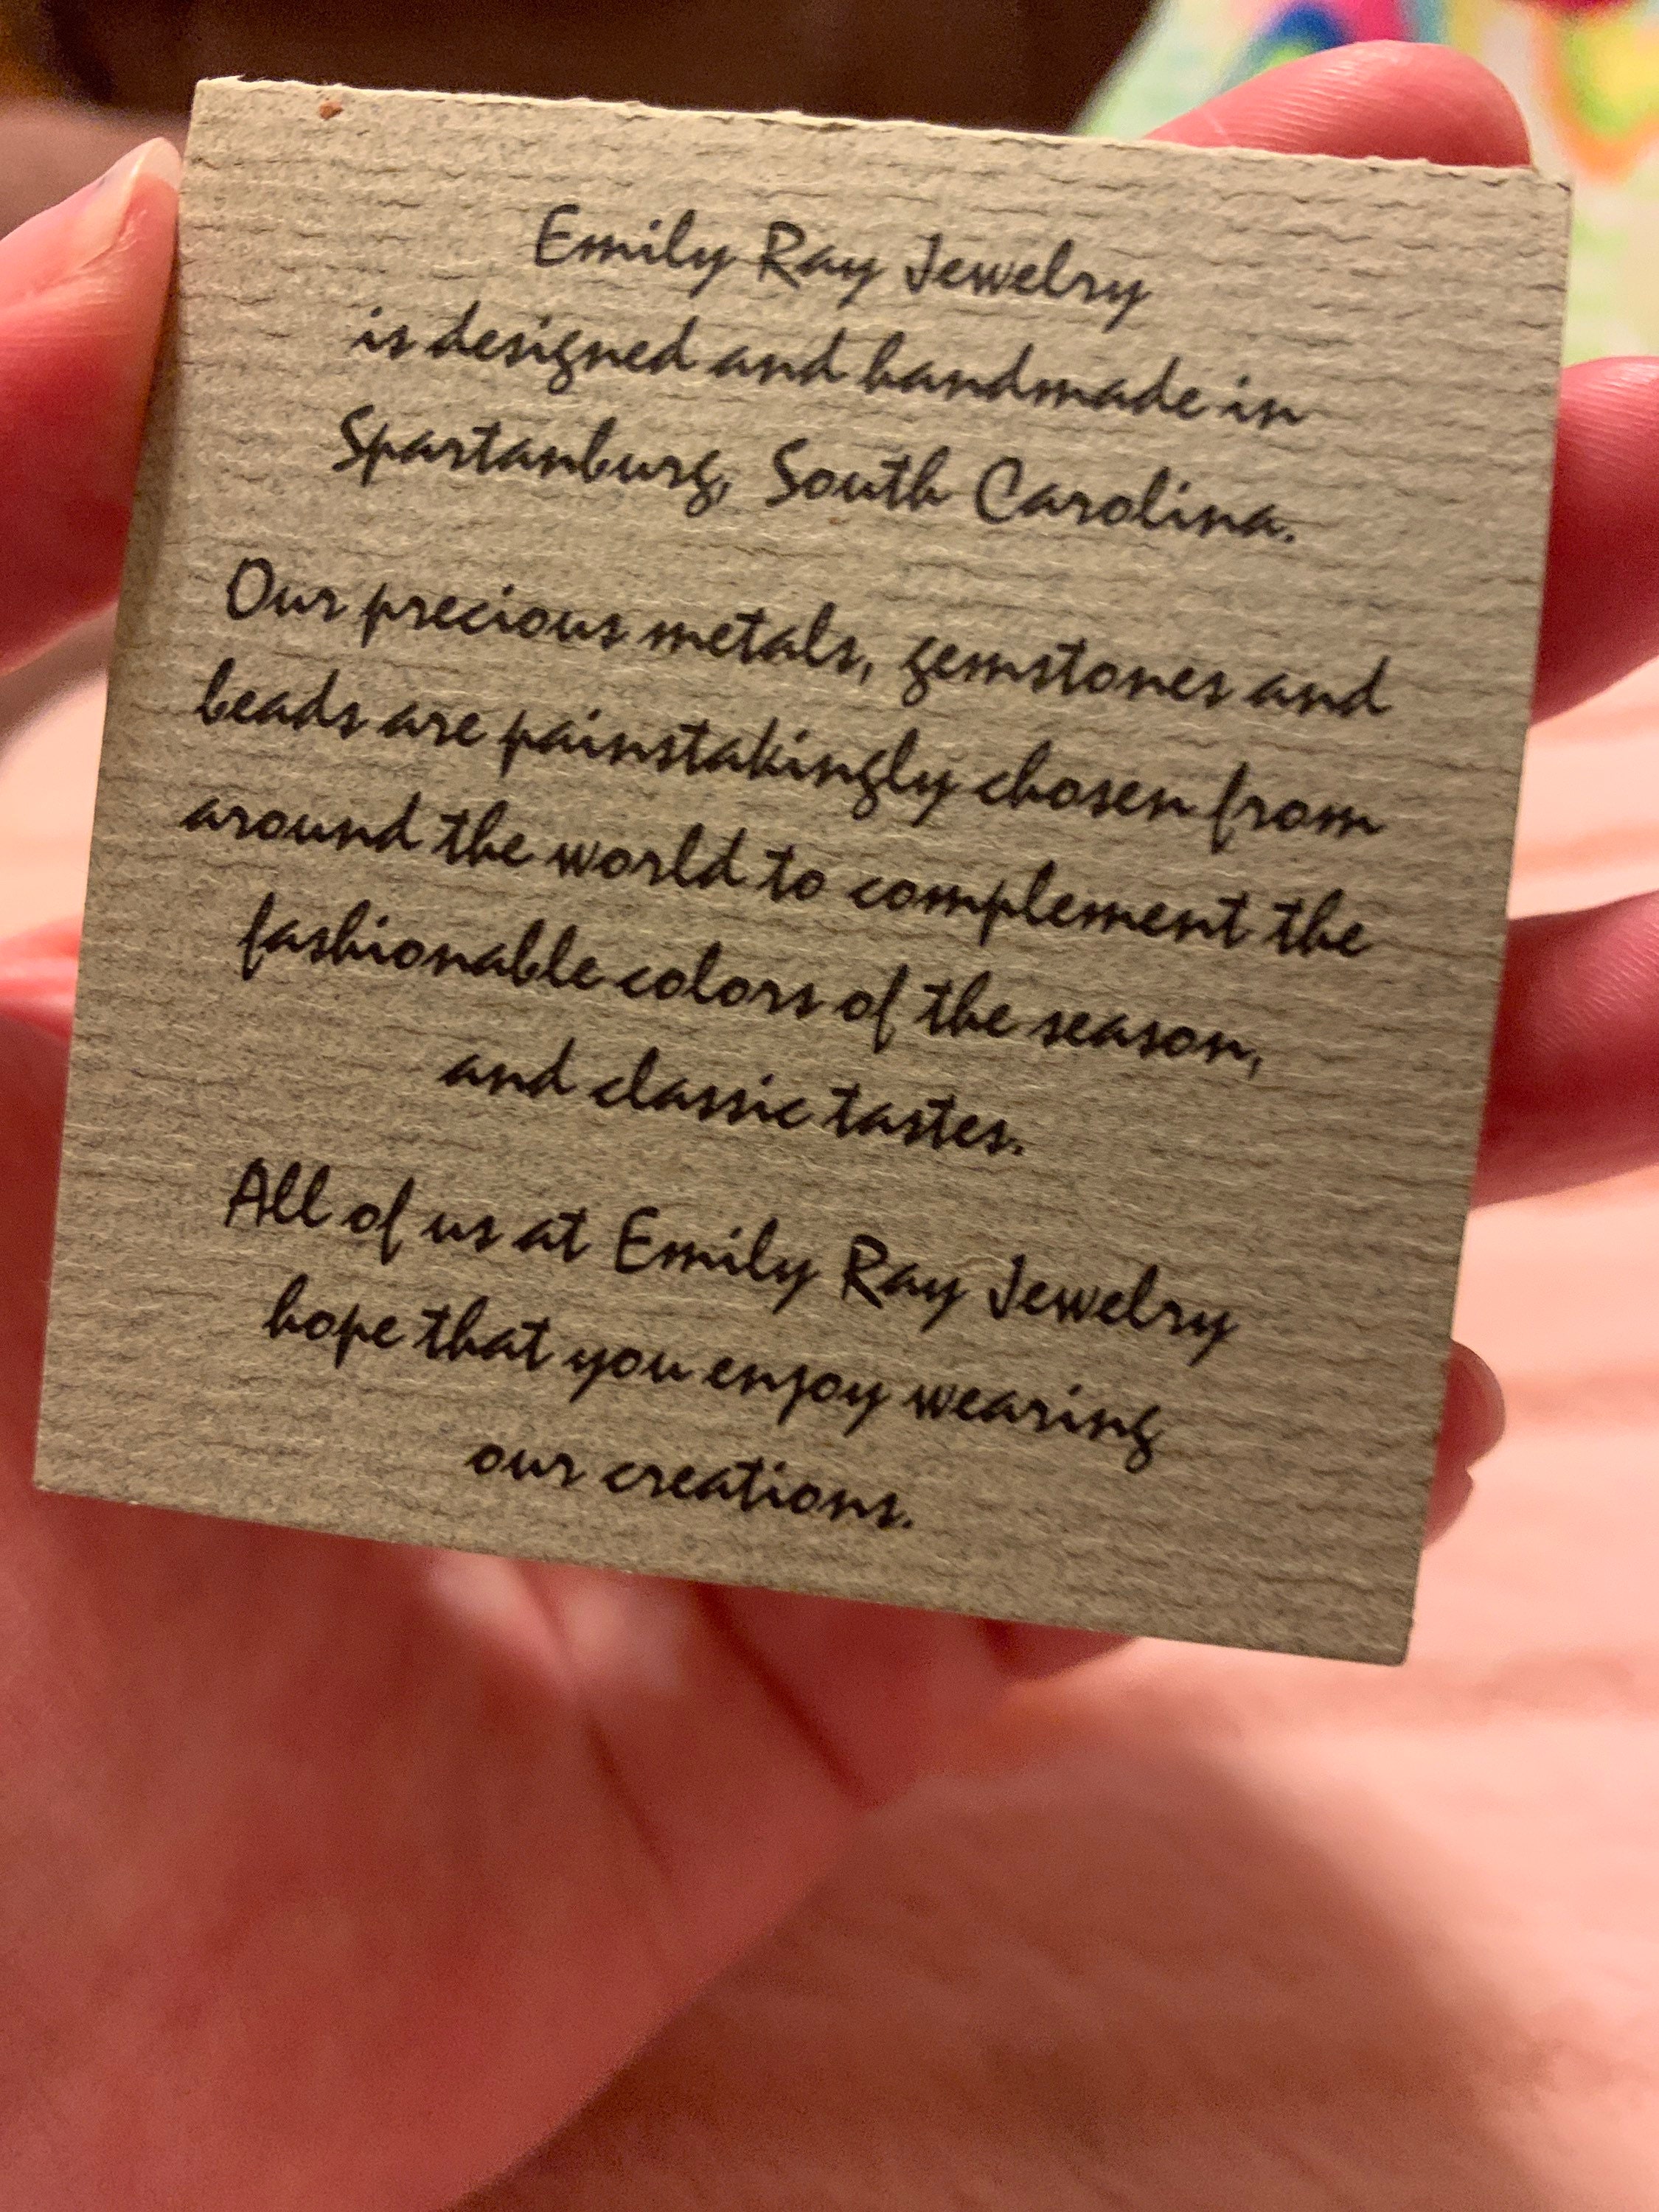 Emily Ray Jewelry
is designed and handmade in
Spartanburg, South Carolina.
Our precious metals, gemstones and
beads are painstakingly chosen from
around the world to complement the
fashionable colors of the season,
and classic tastes.
All of us at Emily Ray Jewelry
hope that you enjoy wearing
our creations.